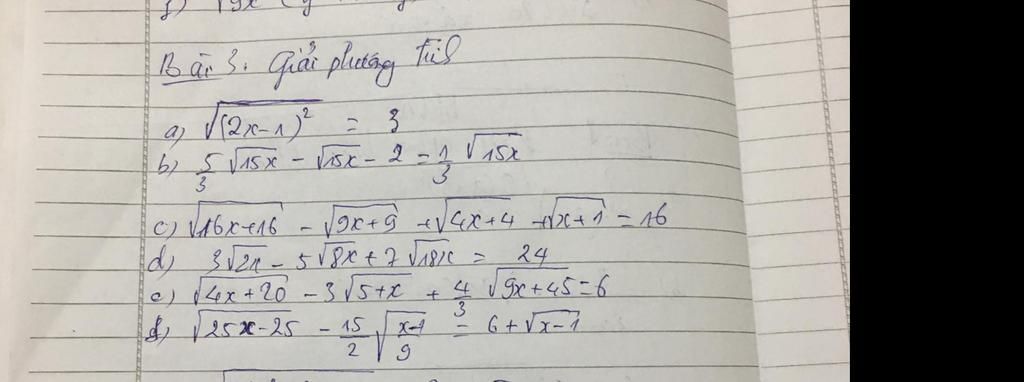 Bài 3. Giải phương trình
a) √(2x-1)² = 3
b) 5/3 √15x - √15x - 2 = 1/3 √15x
c) √16x+16 - √9x+9 + √4x+4 + √x+1 = 16
d) 3√2x - 5√8x + 7√18x = 24
e) √4x+20 - 3√5+x + 4/3 √9x+45 = 6
f) √25x-25 - 15/2 √x-1/9 = 6 + √x-1